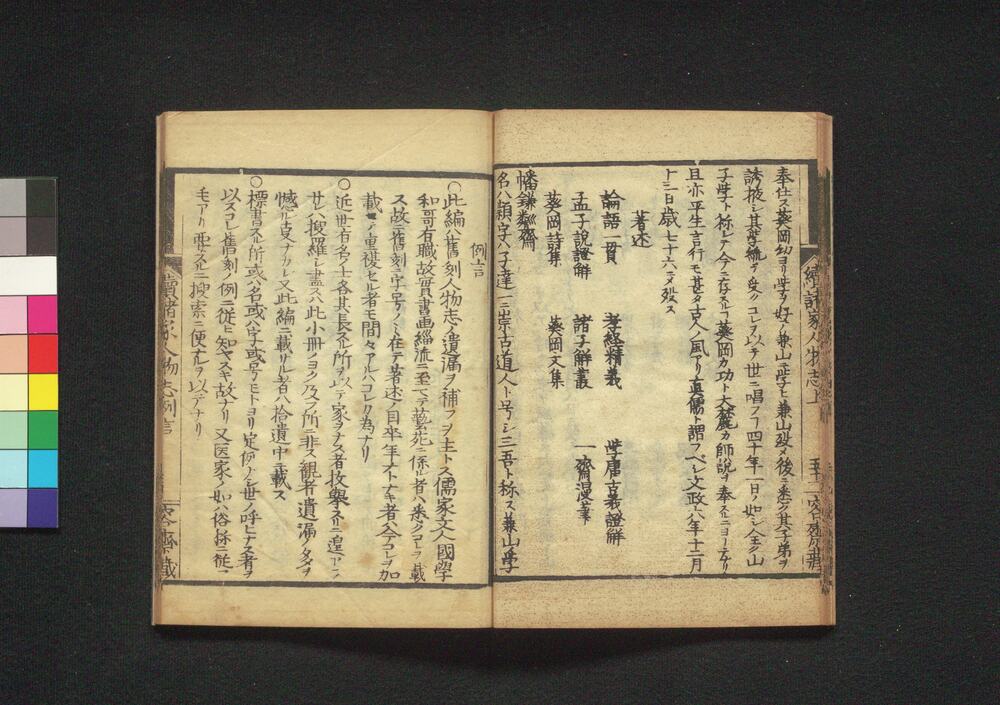 續諸家人物志上
奉仕ス葵岡幼ヨリ学ヲ好ノ兼山ニ学ヒ兼山歿メ後ニ悉ク其子弟ヲ
誘掖シ其学統ヲ受クコレヲ以テ世ニ唱フ四十年一日ノ如シ人全ク山
子学ト称シテ今ニ存スルハ葵岡カ功ト大麓カ師説ヲ奉スルニヨーナリ
且亦平生言行モ甚タ古人ノ風アリ真儒ト謂フベシ文政六年十二月
十三日歳七十六ヲメ歿ス
著述
論語一貫 孝経精義 学庸古義證解
孟子説證解 諸子解叢 一齋漫筆
葵岡詩集 葵岡文集
幡鎌齋
名ハ頴字ハ子達一ニ崇古道人ト号シ三吾ト称ス兼山ニ学
例言
○此編ハ舊刻人物志ノ遺漏ヲ補フヲ主トス儒家文人國學
和哥有職故實書画緇流ニ至ルマテ藝苑ニ係ル者ハ悉クコヲ載
ス故ニ舊刻ニ字号ノミ在テ著述ノ目卒年オトナキ者ハ今コレヲ加
載テ重複セル者モ間々アルハコレカ為ナリ
○近世有名ノ士各其長スル所ヲ以テ家ヲナス者枚擧スルニ遑アラ
サハ搜羅シ盡スハ此小冊ノヨク及フ所ニ非ス観者遺漏多ヲ
憾ル莫ナカレ又此編ニ載サル者ハ拾遺中ニ載ス
○標書スル所或ハ名或ハ字或ハ号モトヨリ定例ナシ世ノ呼ヒナス者ヲ
以スコレ舊刻ノ例ニ従ヒ知ヤスキ故ナリ又医家ノ如ハ俗称ニ従フ
モアリ要スルニ搜索ニ便ナルヲ以テナリ
續諸家人物志例言